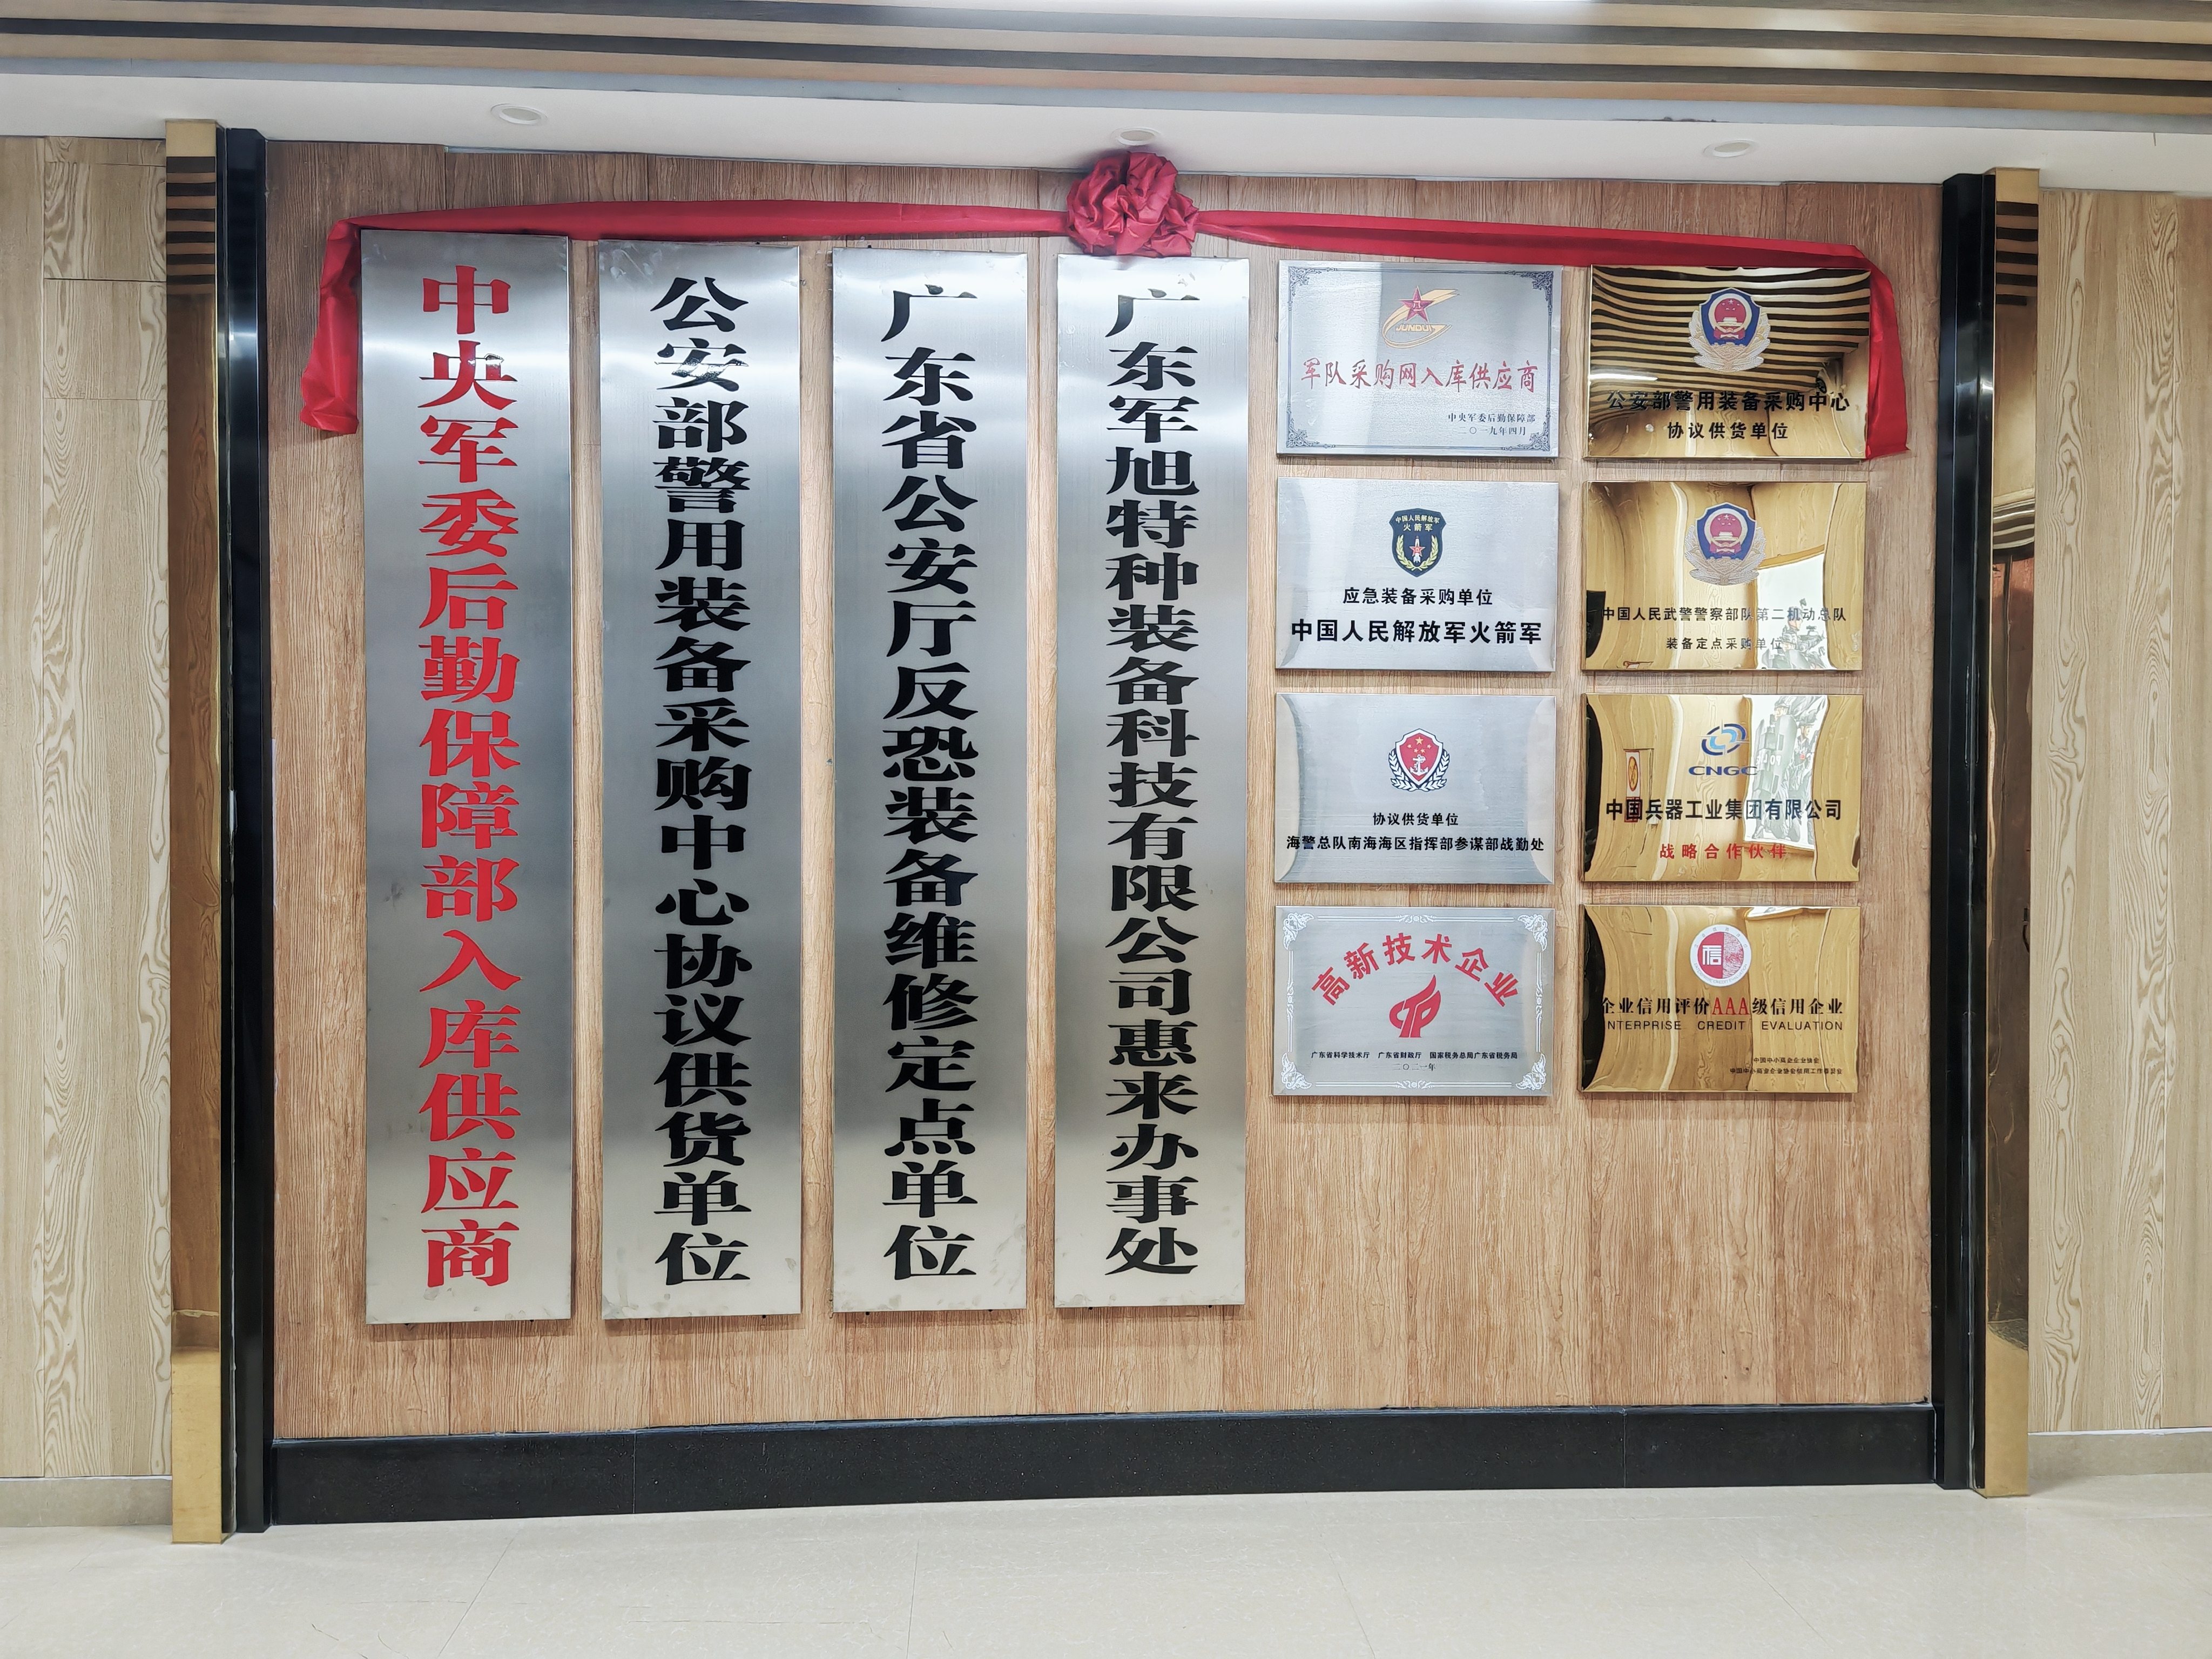 中央军委后勤保障部入库供应商
公安部警用装备采购中心协议供货单位
广东省公安厅反恐装备维修定点单位
广东军旭特种装备科技有限公司惠来办事处
JUNDUI
军队采购网入库供应商
中央军委后勤保障部
二〇一九年四月
公安部警用装备采购中心
协议供货单位
中国人民解放军
火箭军
应急装备采购单位
中国人民解放军火箭军
中国人民武警警察部队第二机动总队
装备定点采购单位
协议供货单位
海警总队南海海区指挥部参谋部战勤处
CNGC
中国兵器工业集团有限公司
战略合作伙伴
高新技术企业
广东省科学技术厅 广东省财政厅 国家税务总局广东省税务局
二〇二一年
信
企业信用评价AAA级信用企业
ENTERPRISE CREDIT EVALUATION
中国中小商业企业协会
中国中小商业企业协会信用工作委员会